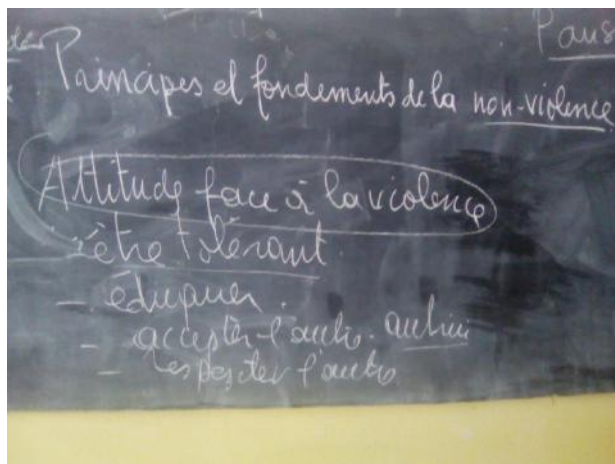 Paus
Principes et fondements de la non-violence
Attitude face à la violence
- être tolérant
- éduquer.
- accepter l'autre.
- Respecter l'autre